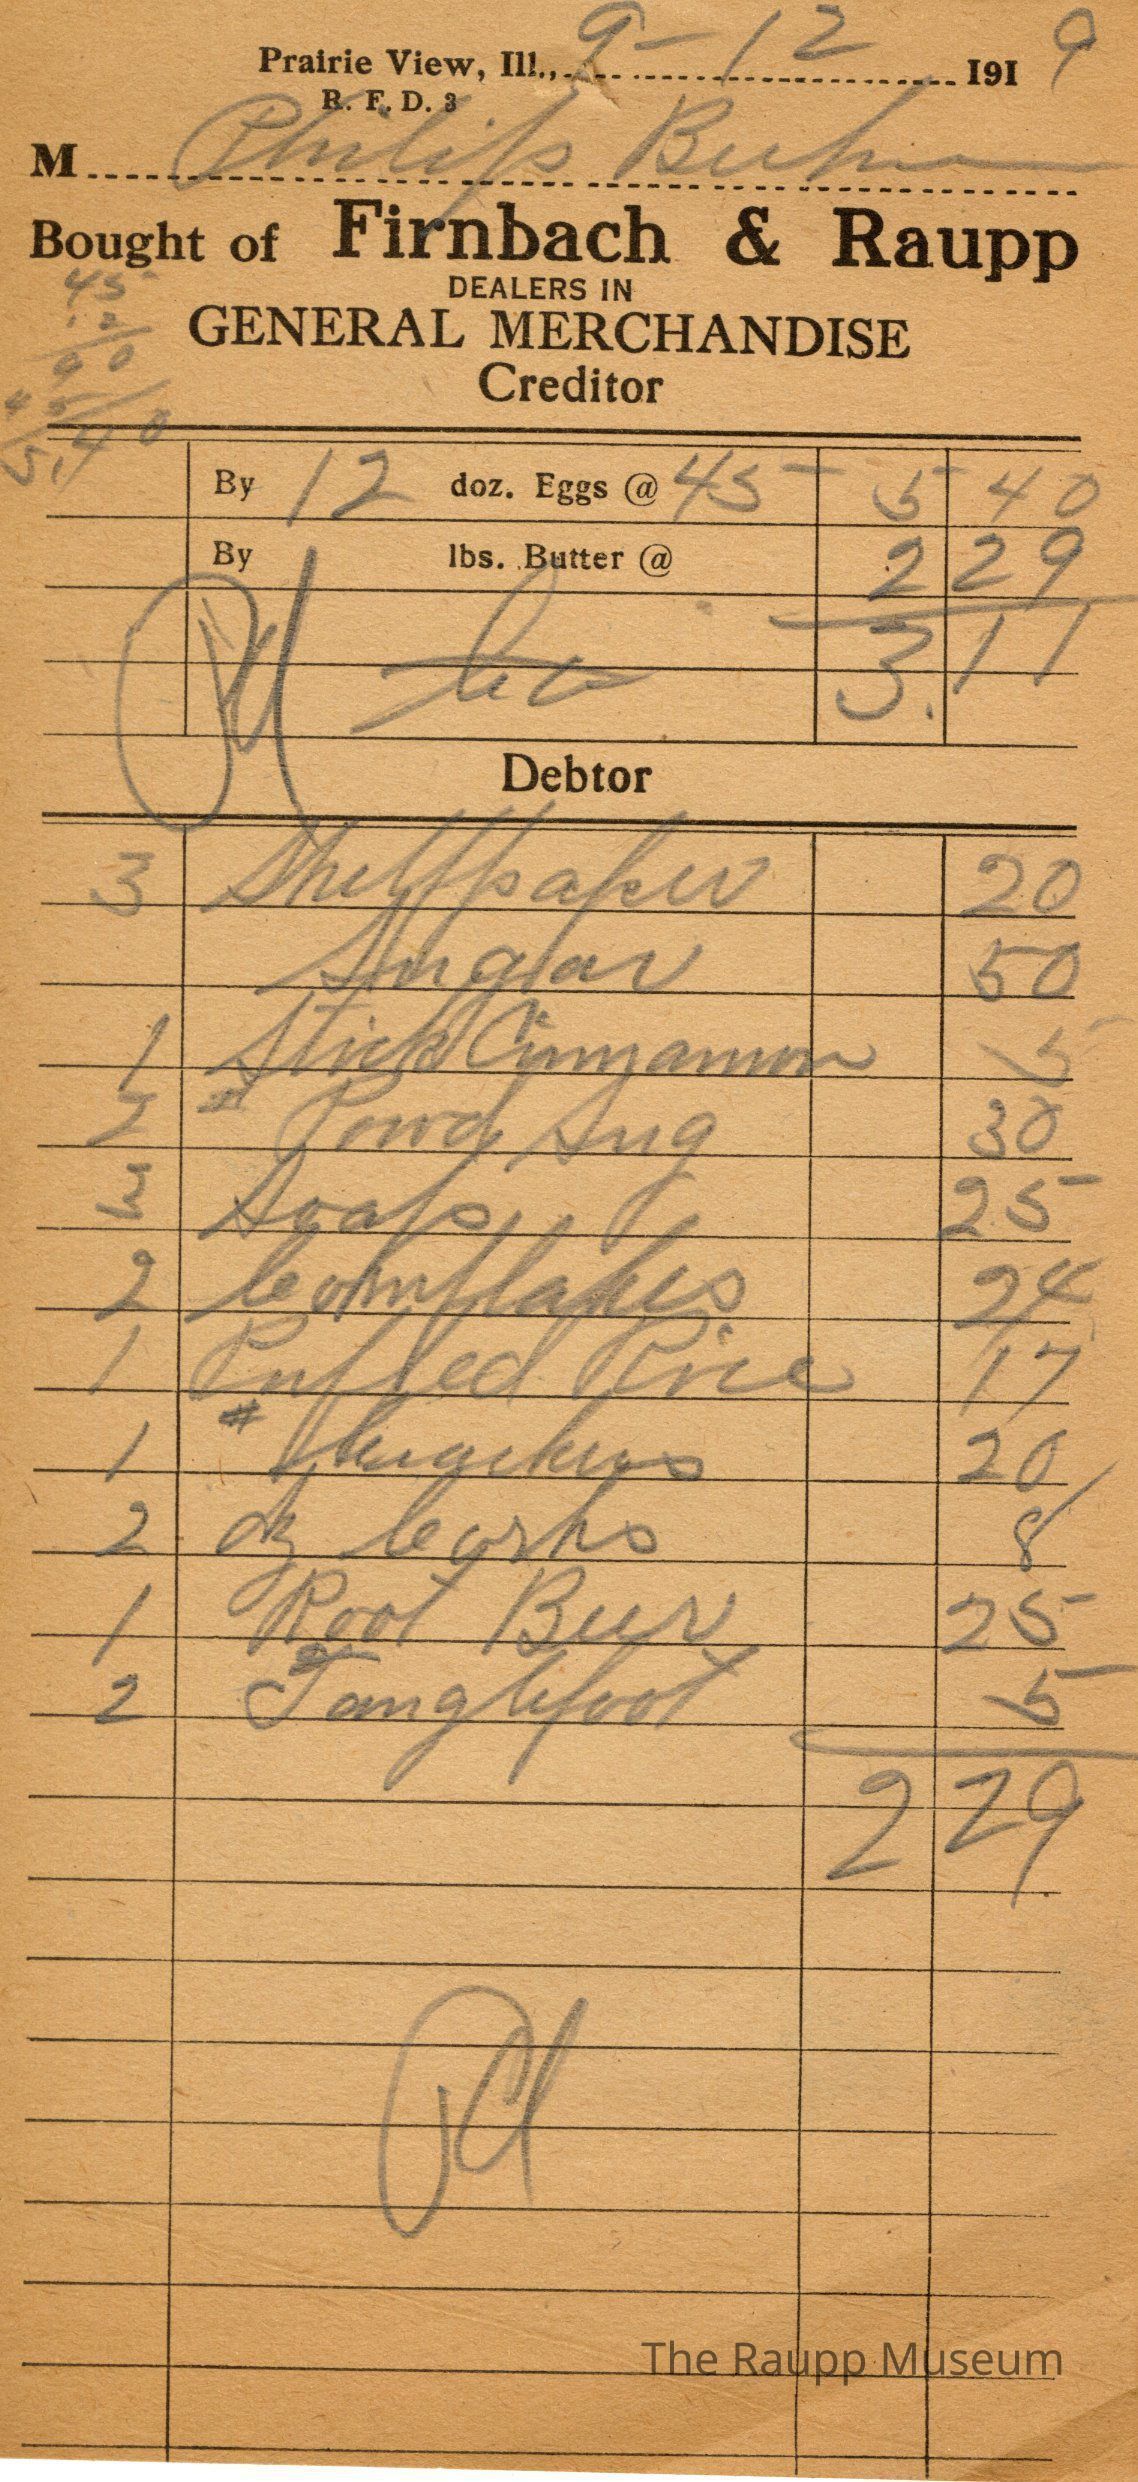 Prairie View, Ill., 9-12 1919
R. F. D. 3
M Philip Buh
Bought of Firnbach & Raupp
DEALERS IN
GENERAL MERCHANDISE
Creditor
45
12
90
45
5.40
By 12 doz. Eggs @ 45 5 40
By lbs. Butter @ 2 29
Pd 3.11
Debtor
3 Shelfpaper 20
Sugar 50
1 Stick Cinnamon 5
2 # Powd Sug 30
3 Soaps 25
2 Cornflakes 24
1 Puffed Rice 17
1 # Crackers 20
2 dz Corks 8
1 Root Beer 25
2 Tanglefoot 5
2 29
Pd
The Raupp Museum